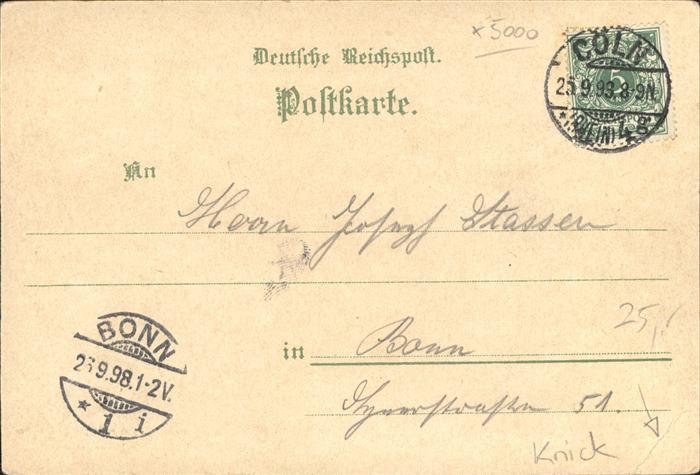 x 5000
Deutsche Reichspost.
Postkarte.
CÖLN
5
25.9.98.8-9N.
*(RHEIN)4a*
An
Herrn Joseph Stassen
25,-
BONN
26.9.98.1-2V.
* 1 i
in Bonn
51.
Knick